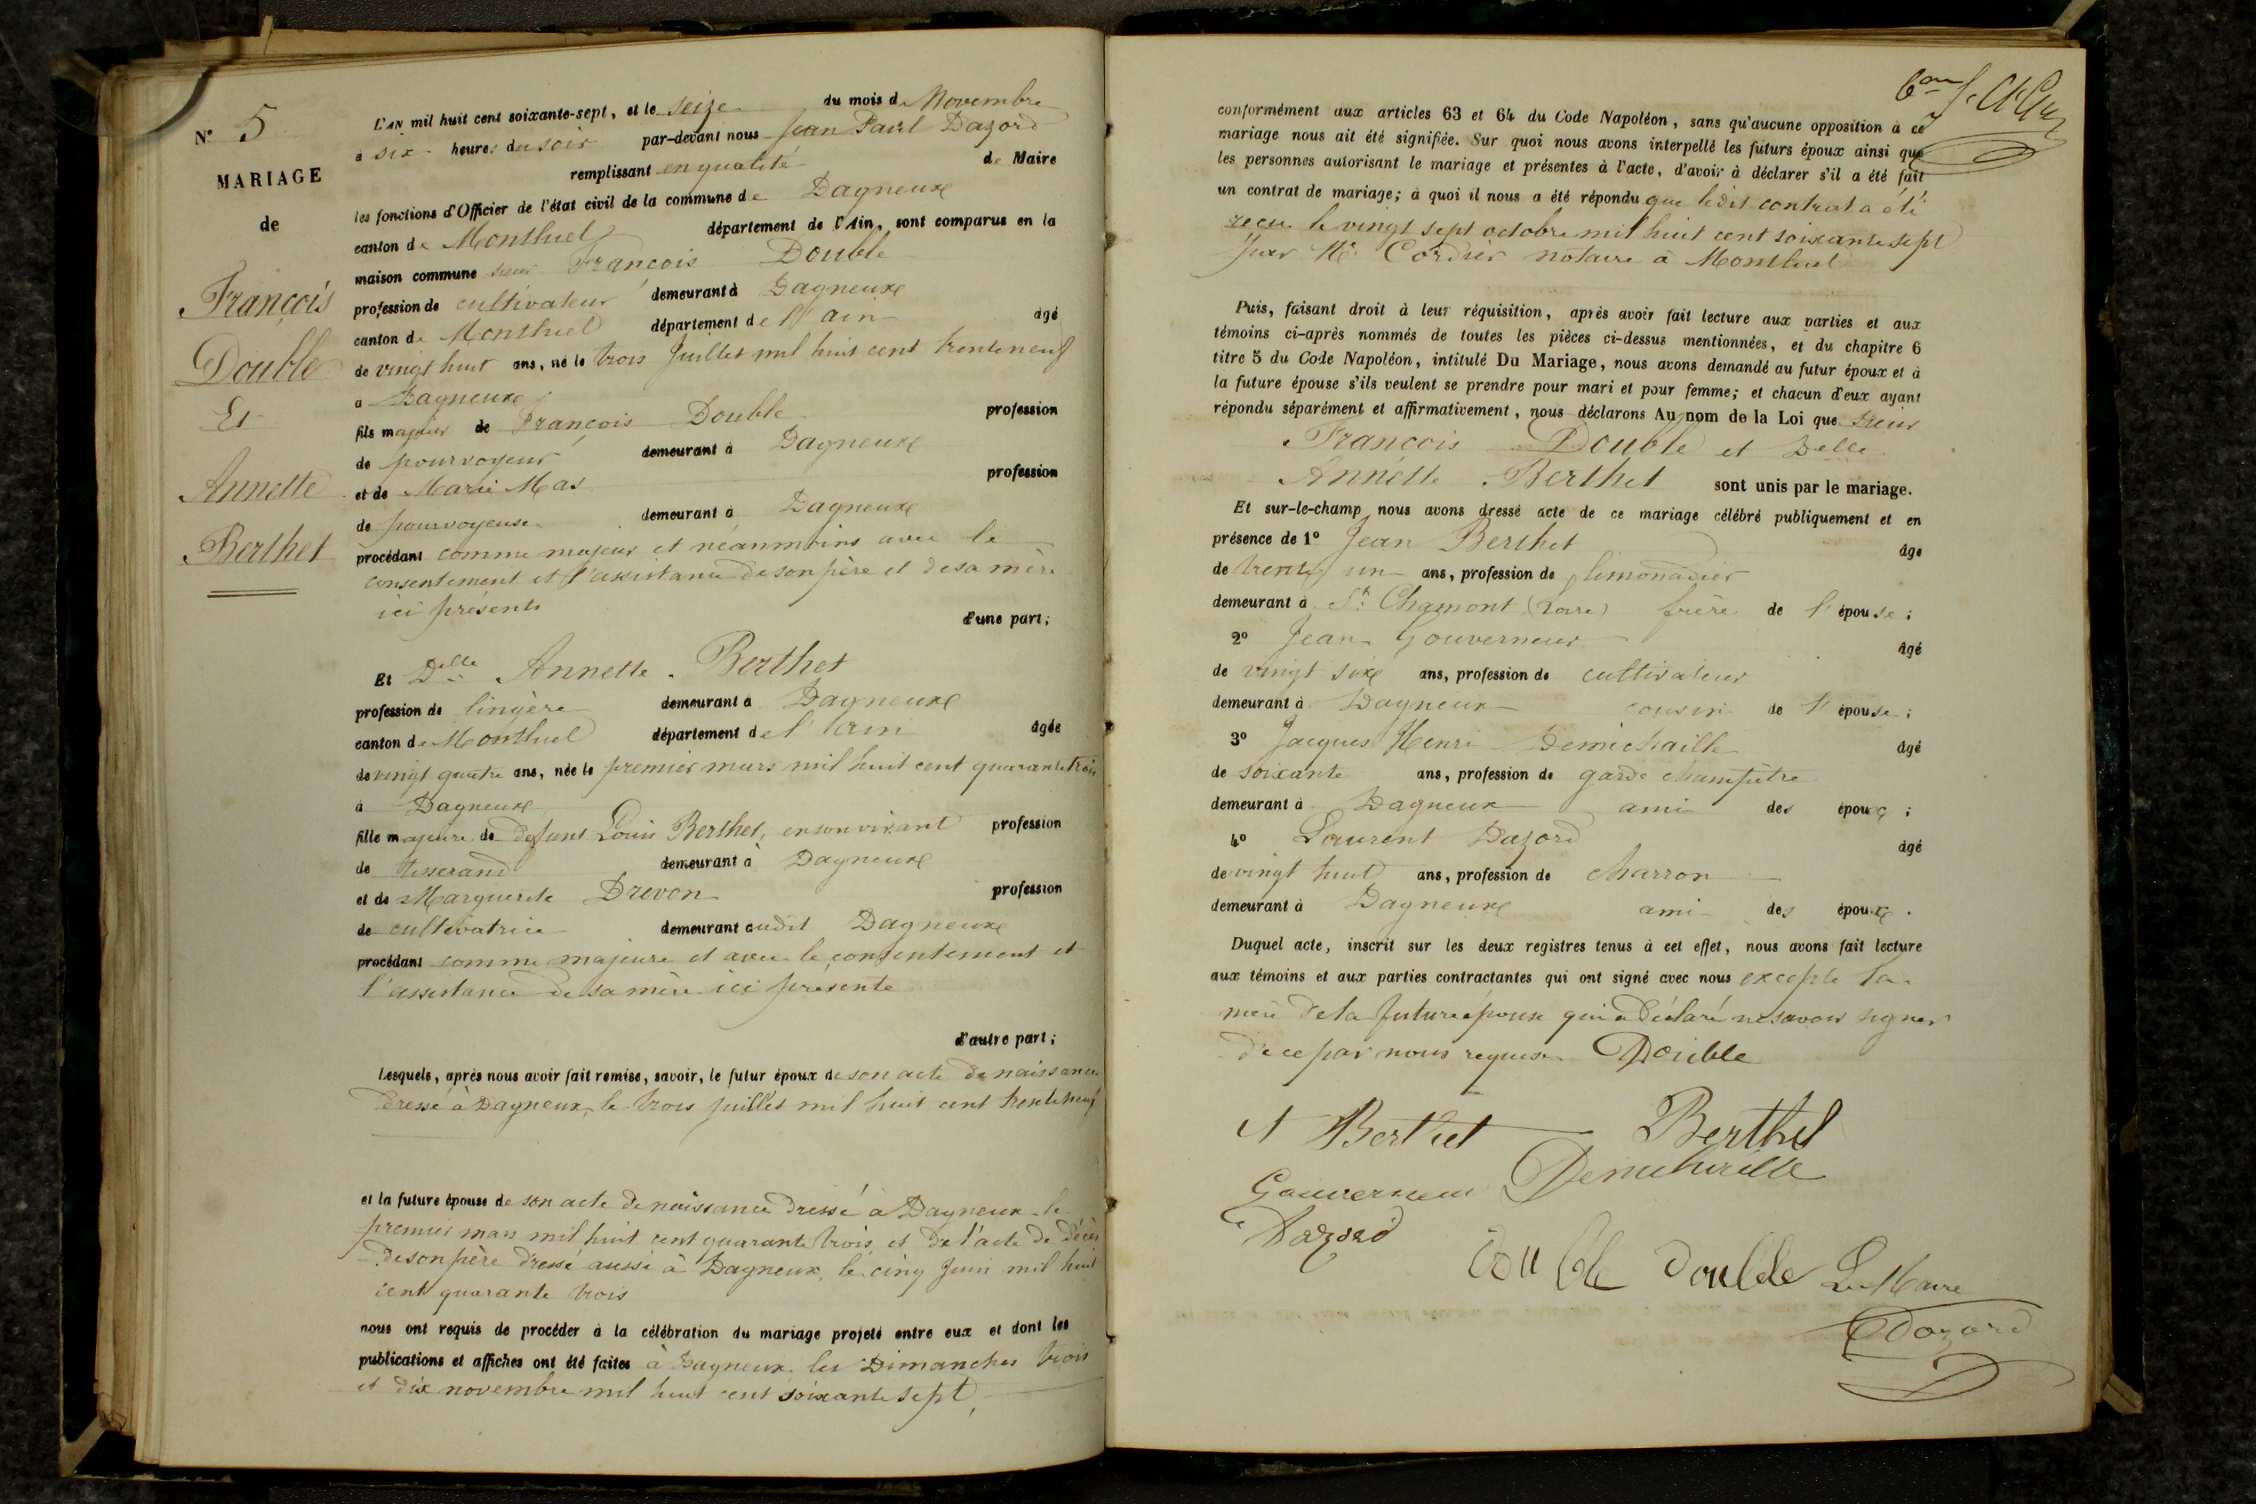 N° 5
MARIAGE
de
François
Double
Et
Annette
Berthet
L'AN mil huit cent soixante-sept, et le seize du mois de Novembre
à six heures du soir par-devant nous Jean Paul Dazord
remplissant en qualité de Maire
les fonctions d'Officier de l'état civil de la commune de Dagneux
canton de Montluel département de l'Ain, sont comparus en la
maison commune sieur François Double
profession de cultivateur demeurant à Dagneux
canton de Montluel département de l'ain âgé
de vingt huit ans, né le trois Juillet mil huit cent trente neuf
à Dagneux
fils majeur de François Double profession
de pourvoyeur demeurant à Dagneux
et de Marie Mas profession
de pourvoyeuse demeurant à Dagneux
procédant comme majeur et néanmoins avec le
consentement et l'assistance de son père et de sa mère
ici présents
d'une part;
Et Delle Annette Berthet
profession de lingère demeurant à Dagneux
canton de Montluel département de l'ain âgée
de vingt quatre ans, née le premier mars mil huit cent quarante trois
à Dagneux
fille majeure de defunt Louis Berthet, en son vivant profession
de tisserand demeurant à Dagneux
et de Marguerite Drevon profession
de cultivatrice demeurant audit Dagneux
procédant comme majeure et avec le consentement et
l'assistance de sa mère ici présente
d'autre part;
Lesquels, après nous avoir fait remise, savoir, le futur époux de son acte de naissance
dressé à Dagneux, le trois juillet mil huit cent trente neuf
et la future épouse de son acte de naissance dressé à Dagneux le
premier mars mil huit cent quarante trois et de l'acte de décès
de son père dressé aussi à Dagneux, le cinq Juin mil huit
cent quarante trois
nous ont requis de procéder à la célébration du mariage projeté entre eux et dont les
publications et affiches ont été faites à Dagneux les Dimanches trois
et dix novembre mil huit cent soixante sept,
conformément aux articles 63 et 64 du Code Napoléon, sans qu'aucune opposition à ce
mariage nous ait été signifiée. Sur quoi nous avons interpellé les futurs époux ainsi que
les personnes autorisant le mariage et présentes à l'acte, d'avoir à déclarer s'il a été fait
un contrat de mariage; à quoi il nous a été répondu que ledit contrat a été
reçu le vingt sept octobre mil huit cent soixante sept
par Me Cordier notaire à Montluel
Puis, faisant droit à leur réquisition, après avoir fait lecture aux parties et aux
témoins ci-après nommés de toutes les pièces ci-dessus mentionnées, et du chapitre 6
titre 5 du Code Napoléon, intitulé Du Mariage, nous avons demandé au futur époux et à
la future épouse s'ils veulent se prendre pour mari et pour femme; et chacun d'eux ayant
répondu séparément et affirmativement, nous déclarons Au nom de la Loi que Sieur
François Double et Delle
Annette Berthet sont unis par le mariage.
Et sur-le-champ nous avons dressé acte de ce mariage célébré publiquement et en
présence de 1° Jean Berthet âgé
de trente un ans, profession de limonadier
demeurant à St Chamont (Loire) frère de l'épouse;
2° Jean Gouverneur âgé
de vingt six ans, profession de cultivateur
demeurant à Dagneux cousin de l'épouse;
3° Jacques Henri Demichaille âgé
de soixante ans, profession de garde champêtre
demeurant à Dagneux ami des époux;
4° Laurent Dazord âgé
de vingt huit ans, profession de charron
demeurant à Dagneux ami des époux.
Duquel acte, inscrit sur les deux registres tenus à cet effet, nous avons fait lecture
aux témoins et aux parties contractantes qui ont signé avec nous excepté la
mère de la future épouse qui a déclaré ne savoir signer
de ce par nous requise Double
A Berthet Berthet
Gouverneur Demichaille
Dazord
Double Double Le Maire
Dazord